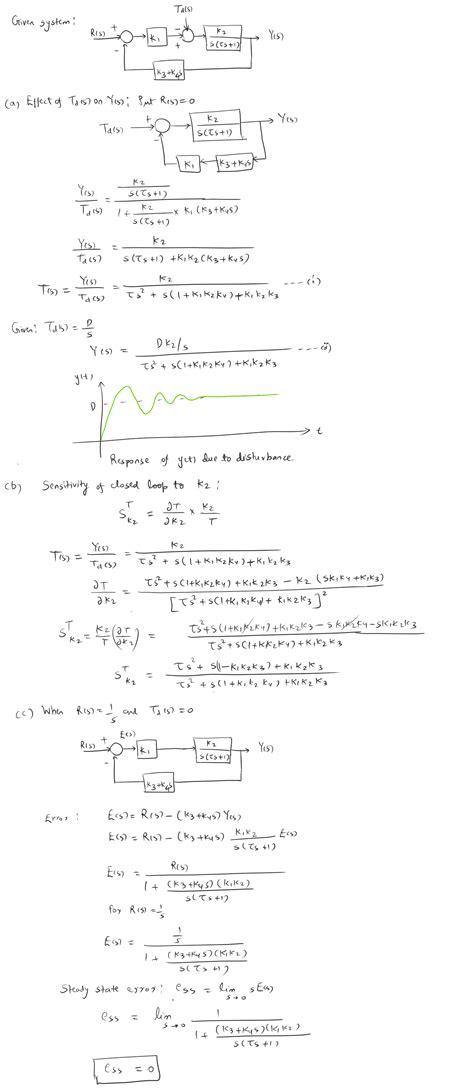 Given system:
Td(s)
R(s) + - K1 - + K2 / s(τs+1) Y(s)
K3+K4s
(a) Effect of Td(s) on Y(s); Put R(s)=0
Td(s) + - K2 / s(τs+1) Y(s)
K1 K3+K4s
Y(s)/Td(s) = (K2 / s(τs+1)) / (1 + K2 / s(τs+1) × K1(K3+K4s))
Y(s)/Td(s) = K2 / (s(τs+1) + K1K2(K3+K4s))
T(s) = Y(s)/Td(s) = K2 / (τs² + s(1+K1K2K4)+K1K2K3) ----(i)
Given: Td(s) = D/s
Y(s) = (DK2/s) / (τs² + s(1+K1K2K4)+K1K2K3) ----(ii)
y(t)
D
t
Response of y(t) due to disturbance.
(b) Sensitivity of closed loop to K2:
S^T_K2 = ∂T/∂K2 × K2/T
T(s) = Y(s)/Td(s) = K2 / (τs² + s(1+K1K2K4)+K1K2K3)
∂T/∂K2 = (τs² + s(1+K1K2K4)+K1K2K3 − K2(sK1K4+K1K3)) / [τs²+s(1+K1K2K4)+K1K2K3]²
S^T_K2 = K2/T (∂T/∂K2) = (τs²+s(1+K1K2K4)+K1K2K3 − sK1K2K4 − sK1K2K3) / (τs²+s(1+K1K2K4)+K1K2K3)
S^T_K2 = (τs² + s(1−K1K2K3)+K1K2K3) / (τs² + s(1+K1K2K4)+K1K2K3)
(c) When R(s)=1/s and Td(s)=0
R(s) + - E(s) K1 K2 / s(τs+1) Y(s)
K3+K4s
Error: E(s) = R(s) − (K3+K4s) Y(s)
E(s) = R(s) − (K3+K4s) K1K2 / s(τs+1) E(s)
E(s) = R(s) / (1 + (K3+K4s)(K1K2) / s(τs+1))
for R(s)=1/s
E(s) = (1/s) / (1 + (K3+K4s)(K1K2) / s(τs+1))
Steady state error: ess = lim s→0 sE(s)
ess = lim s→0 1 / (1 + (K3+K4s)(K1K2) / s(τs+1))
ess = 0